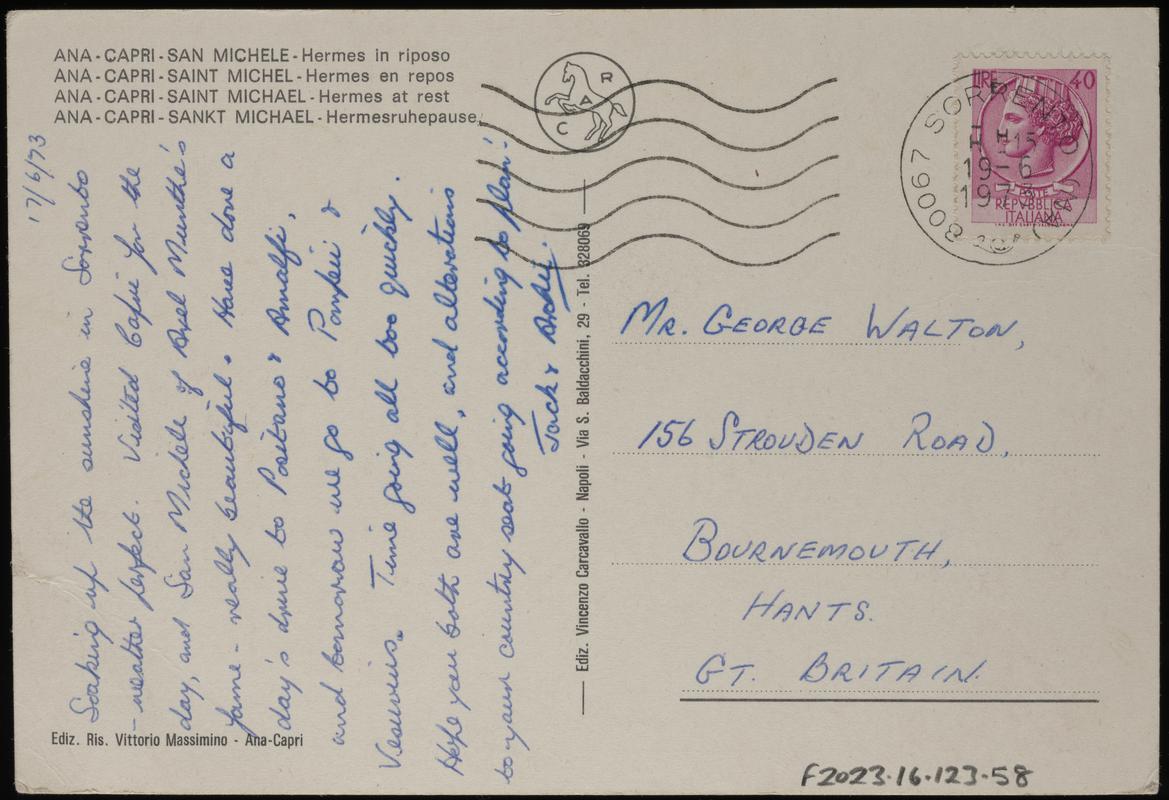 ANA-CAPRI-SAN MICHELE-Hermes in riposo
ANA-CAPRI-SAINT MICHEL-Hermes en repos
ANA-CAPRI-SAINT MICHAEL-Hermes at rest
ANA-CAPRI-SANKT MICHAEL-Hermesruhepause
C A R
17/6/73
Soaking up the sunshine in Sorrento
- weather perfect. Visited Capri for the
day, and San Michele of Axel Munthe's
fame - really beautiful. Have done a
day's drive to Positano & Amalfi,
and tomorrow we go to Pompeii &
Vesuvius. Time going all too quickly.
Hope you both are well, and alterations
to your country seat going according to plan!
Jack &
Ediz. Ris. Vittorio Massimino - Ana-Capri
Ediz. Vincenzo Carcavallo - Napoli - Via S. Baldacchini, 29 - Tel. 328069
LIRE 40
POSTE
REPVBBLICA
ITALIANA
80067 SORRENTO
19-6
1973
MR. GEORGE WALTON,
156 STROUDEN ROAD,
BOURNEMOUTH,
HANTS.
GT. BRITAIN.
F2023.16.123.58